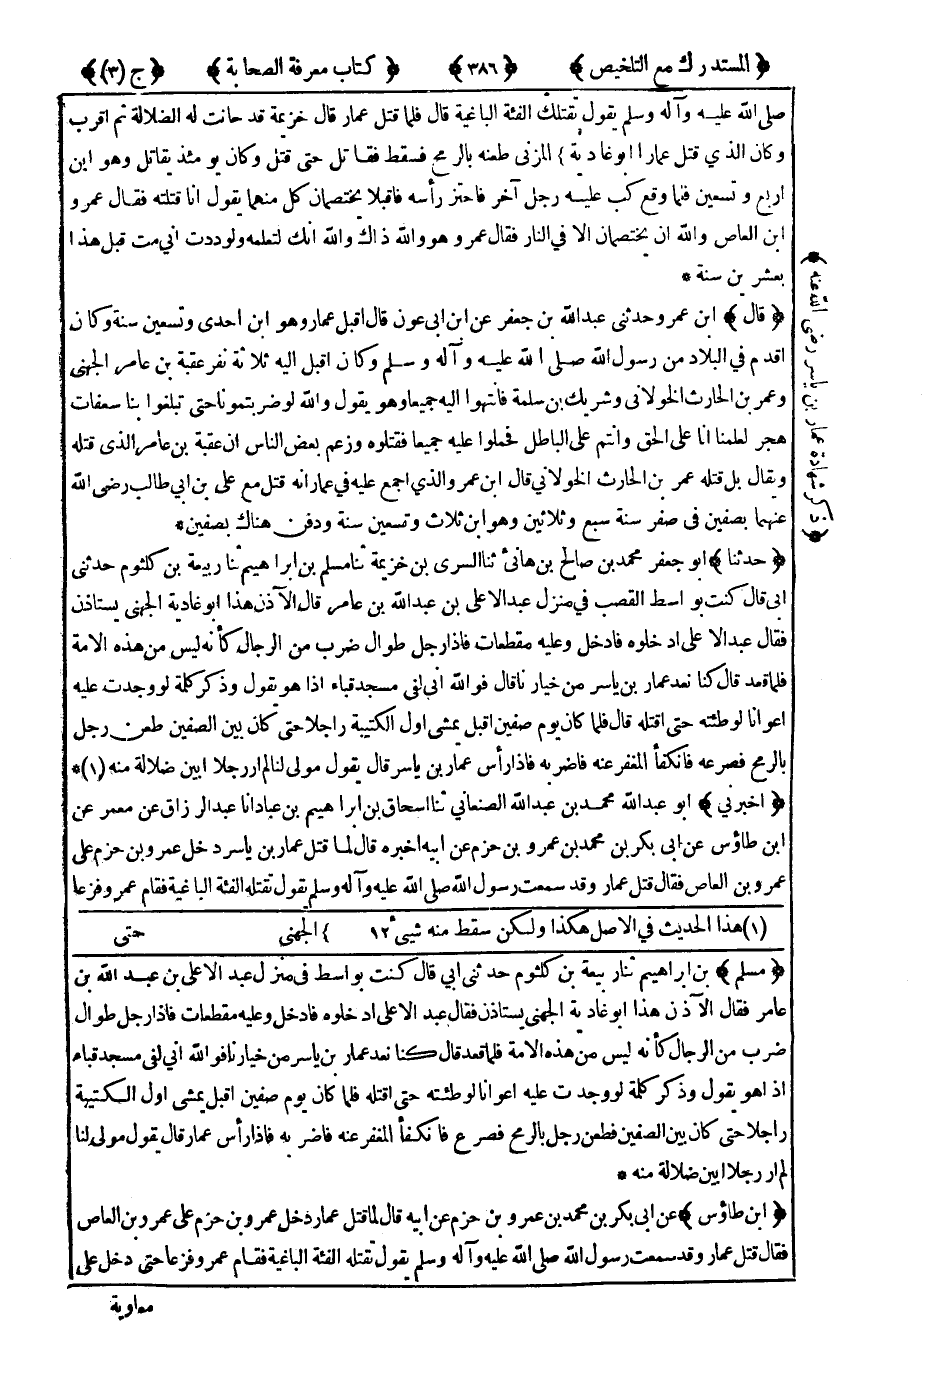 ﴿ المستدرك مع التلخيص ﴾ ﴿ ٣٨٦ ﴾ ﴿ كتاب معرفة الصحابة ﴾ ﴿ ج (٣) ﴾
صلى الله عليه وآله وسلم يقول تقتلك الفئة الباغية قال فلما قتل عمار قال خزيمة قد حانت له الضلالة ثم اقرب
وكان الذي قتل عمارا ابوغادية } المزنى طعنه بالرمح فسقط فقاتل حتى قتل وكان يومئذ يقاتل وهو ابن
اربع وتسعين فلما وقع كب عليه رجل آخر فاحتز رأسه فاقبلا يختصمان كل منهما يقول انا قتلته فقال عمرو
ابن العاص والله ان يختصمان الا في النار فقال عمرو هو والله ذاك والله انك لتعلمه ولوددت اني مت قبل هذا
بعشرين سنة *
﴿ قال ﴾ ابن عمر وحدثنى عبدالله بن جعفر عن ابن ابى عون قال اقبل عمار وهو ابن احدى وتسعين سنة وكان
اقدم في البلاد من رسول الله صلى الله عليه وآله وسلم وكان اقبل اليه ثلاثة نفر عقبة بن عامر الجهنى
وعمر بن الحارث الخولانى وشريك بن سلمة فانتهوا اليه جميعا وهو يقول والله لو ضربتمونا حتى تبلغوا بنا سعفات
هجر لعلمنا انا على الحق وانتم على الباطل فحملوا عليه جميعا فقتلوه وزعم بعض الناس ان عقبة بن عامر الذى قتله
ويقال بل قتله عمر بن الحارث الخولاني قال ابن عمر والذي اجمع عليه في عمار انه قتل مع على بن ابي طالب رضى الله
عنهما بصفين فى صفر سنة سبع وثلاثين وهو ابن ثلاث وتسعين سنة ودفن هناك بصفين *
﴿ حدثنا ﴾ ابو جعفر محمد بن صالح بن هانئ ثنا السرى بن خزيمة ثنا مسلم بن ابراهيم ثنا ربيعة بن كلثوم حدثنى
ابى قال كنت بواسط القصب في منزل عبد الاعلى بن عبدالله بن عامر قال الآذن هذا ابوغادية الجهنى يستاذن
فقال عبد الاعلى ادخلوه فادخل وعليه مقطعات فاذا رجل طوال ضرب من الرجال كأنه ليس من هذه الامة
فلما قعد قال كنا نعد عمار بن ياسر من خيارنا قال فو الله انى لفى مسجد قباء اذا هو يقول وذكر كلمة لو وجدت عليه
اعوانا لوطئته حتى اقتله قال فلما كان يوم صفين اقبل يمشى اول الكتيبة راجلا حتى كان بين الصفين طعن رجل
بالرمح فصرعه فانكفأ المغفر عنه فاضربه فاذا رأس عمار بن ياسر قال يقول مولى لنا لم ار رجلا ابين ضلالة منه (١) *
﴿ اخبرني ﴾ ابو عبدالله محمد بن عبدالله الصنعاني ثنا اسحاق بن ابراهيم بن عباد انا عبدالرزاق عن معمر عن
ابن طاؤس عن ابى بكر بن محمد بن عمرو بن حزم عن ابيه اخبره قال لما قتل عمار بن ياسر دخل عمرو بن حزم على
عمرو بن العاص فقال قتل عمار وقد سمعت رسول الله صلى الله عليه وآله وسلم يقول تقتله الفئة الباغية فقام عمرو فزعا
(١) هذا الحديث في الاصل هكذا ولكن سقط منه شيئ ١٢ } الجهنى حتى
﴿ مسلم ﴾ بن ابراهيم ثنا ربيعة بن كلثوم حدثنى ابي قال كنت بواسط فى منزل عبد الاعلى بن عبد الله بن
عامر فقال الآذن هذا ابوغادية الجهنى يستاذن فقال عبد الاعلى ادخلوه فادخل وعليه مقطعات فاذا رجل طوال
ضرب من الرجال كأنه ليس من هذه الامة فلما قعد قال كنا نعد عمار بن ياسر من خيارنا فو الله اني لفى مسجد قباء
اذا هو يقول وذكر كلمة لو وجدت عليه اعوانا لوطئته حتى اقتله فلما كان يوم صفين اقبل يمشى اول الكتيبة
راجلا حتى كان بين الصفين فطعن رجل بالرمح فصرع فانكفأ المغفر عنه فاضربه فاذا رأس عمار قال يقول مولى لنا
لم ار رجلا ابين ضلالة منه *
﴿ ابن طاؤس ﴾ عن ابى بكر بن محمد بن عمرو بن حزم عن ابيه قال لما قتل عمار دخل عمرو بن حزم على عمرو بن العاص
فقال قتل عمار وقد سمعت رسول الله صلى الله عليه وآله وسلم يقول تقتله الفئة الباغية فقام عمرو فزعا حتى دخل على
معاوية
﴿ ذكر شهادة عمار بن ياسر رضى الله عنه ﴾